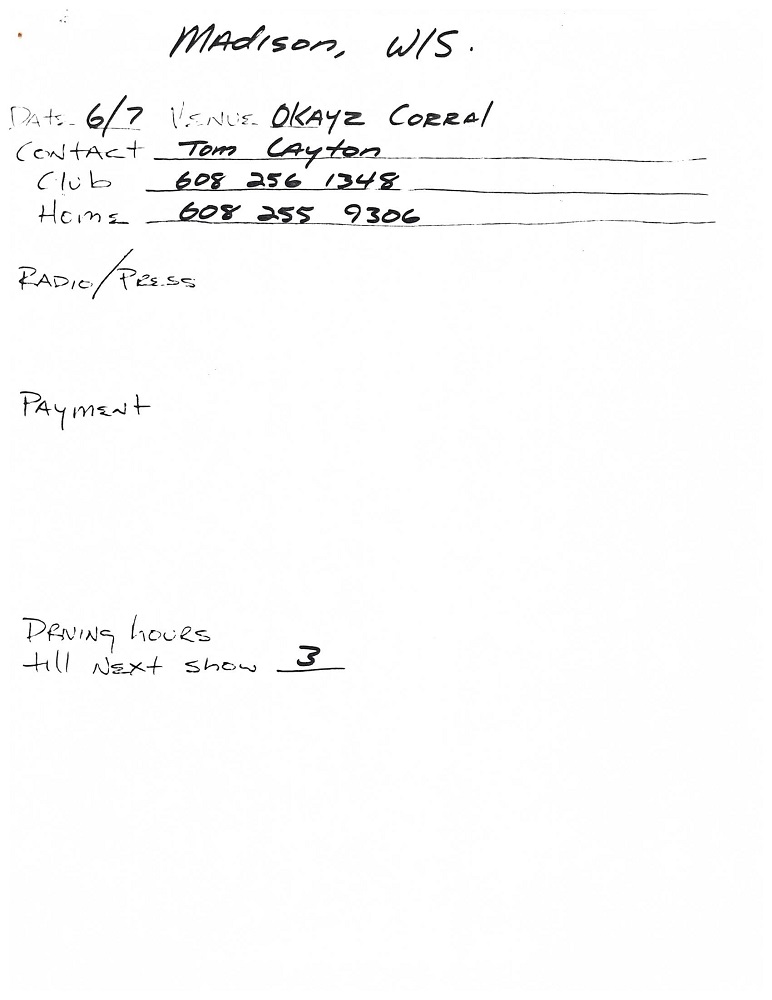 Madison, WIS.
Date 6/7 Venue OKAYZ CORRAl
Contact Tom Layton
Club 608 256 1348
Home 608 255 9306
Radio/Press
Payment
Driving hours
till Next show 3